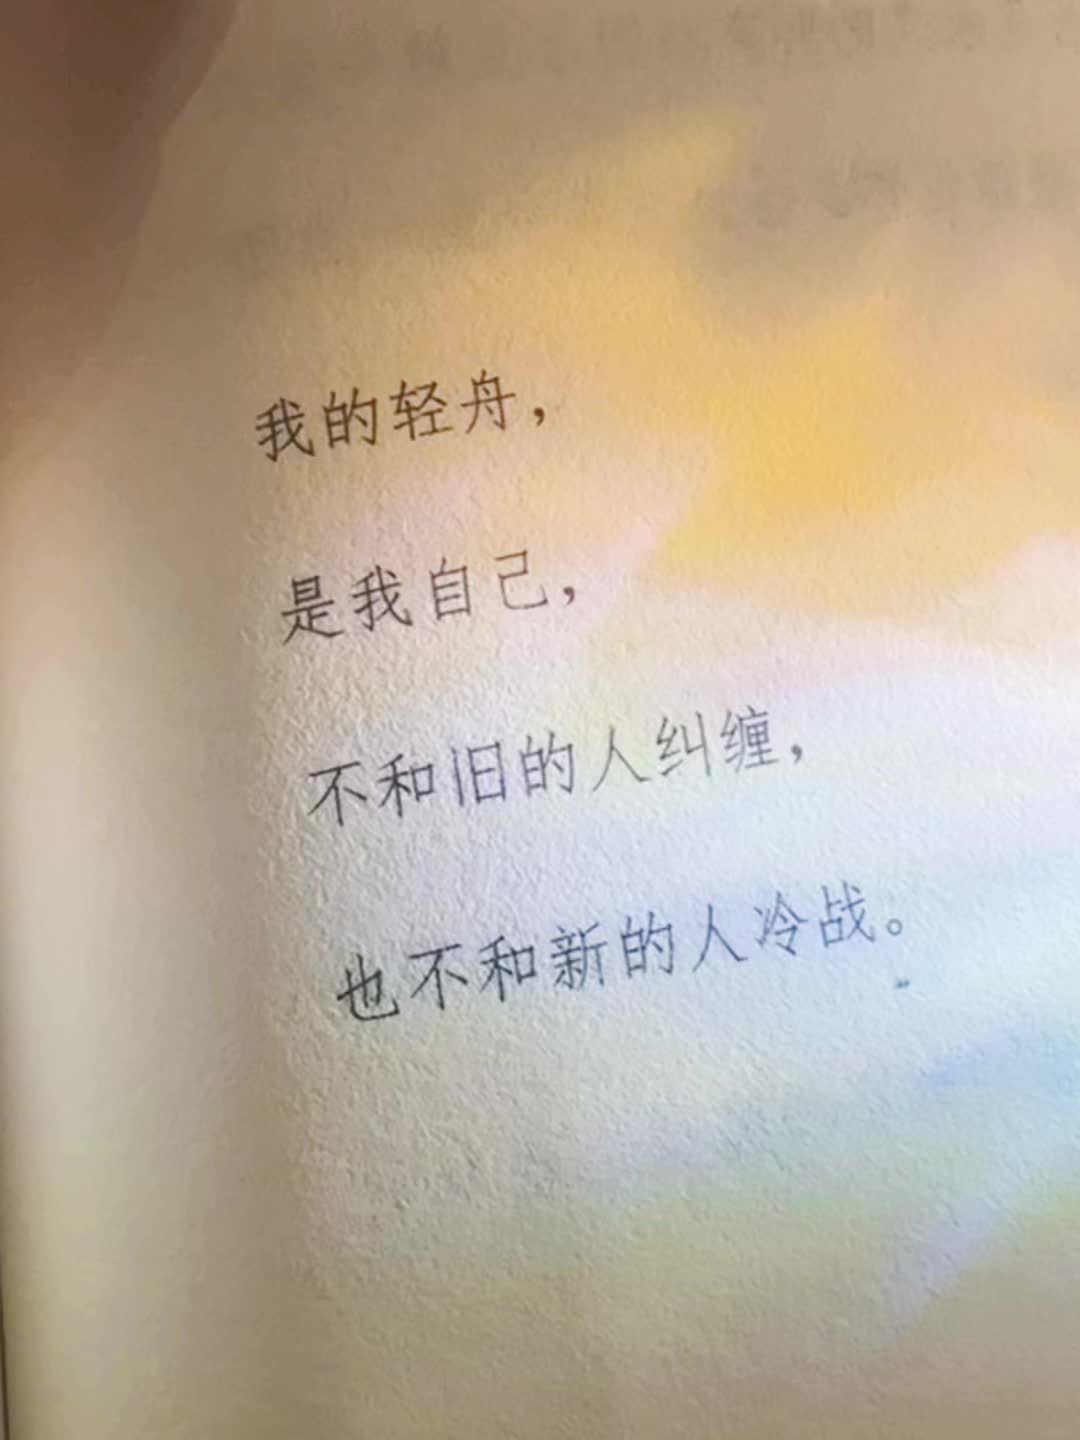 我的轻舟，
是我自己，
不和旧的人纠缠，
也不和新的人冷战。